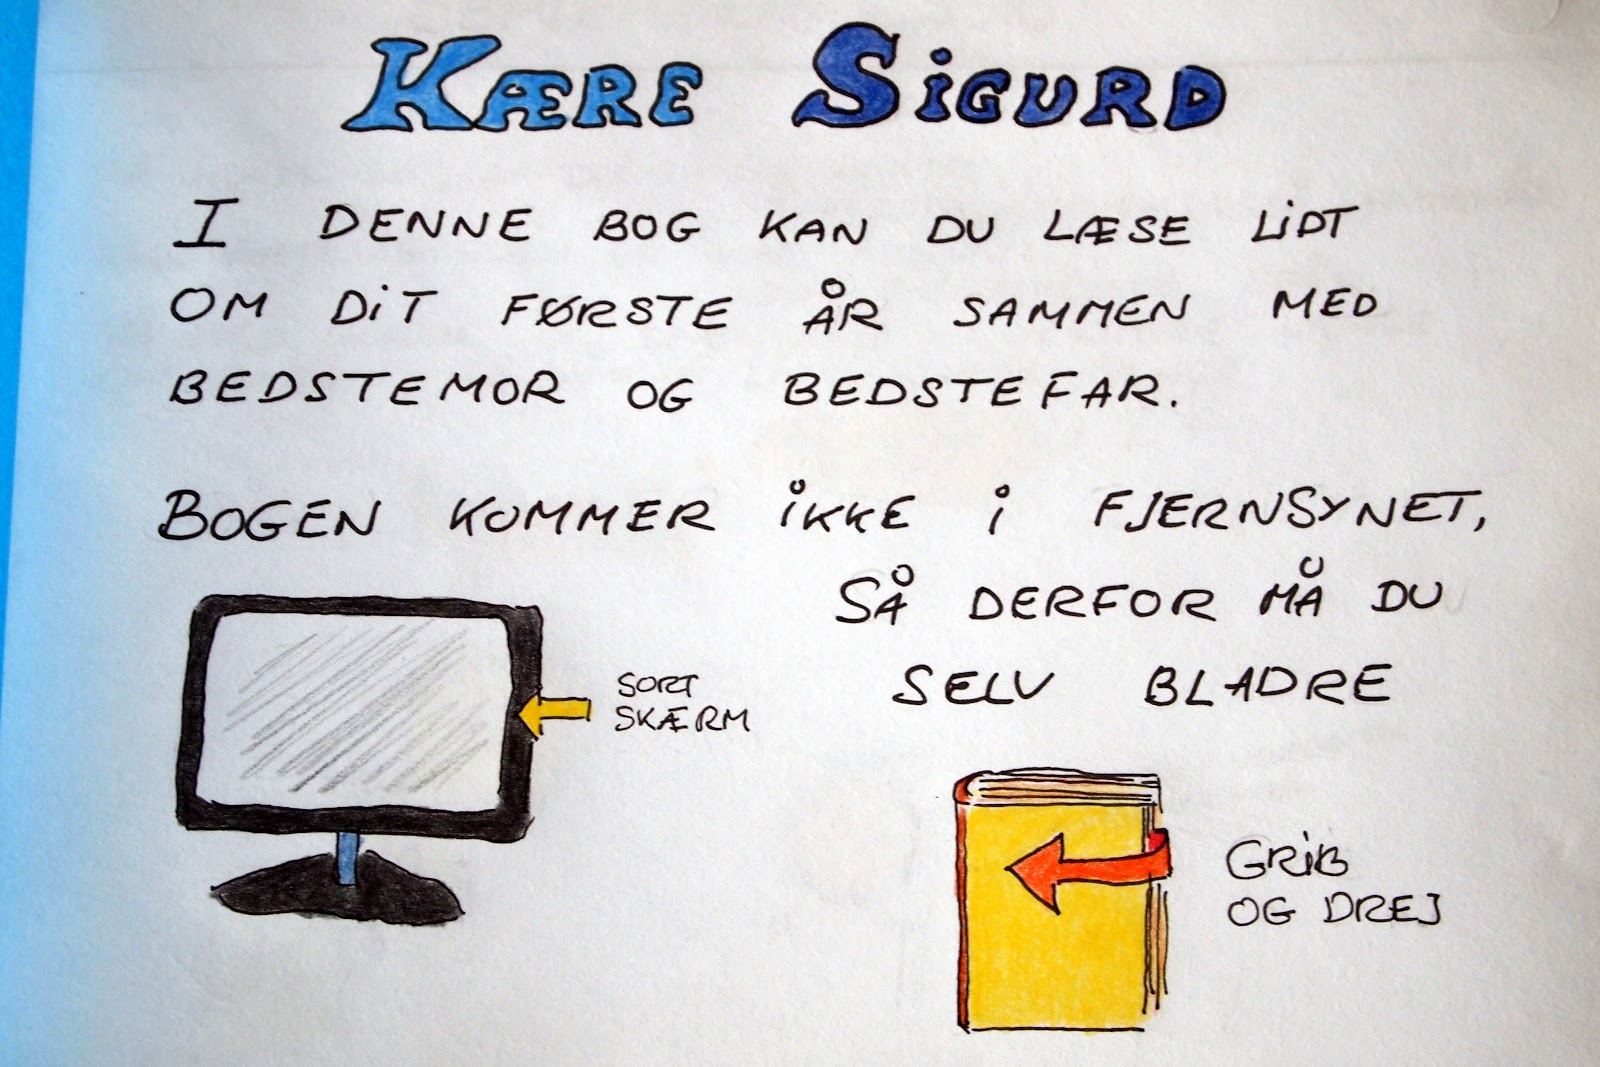 KÆRE SIGURD
I DENNE BOG KAN DU LÆSE LIDT
OM DIT FØRSTE ÅR SAMMEN MED
BEDSTEMOR OG BEDSTEFAR.
BOGEN KOMMER IKKE I FJERNSYNET,
SÅ DERFOR MÅ DU
SELV BLADRE
SORT
SKÆRM
GRIB
OG DREJ